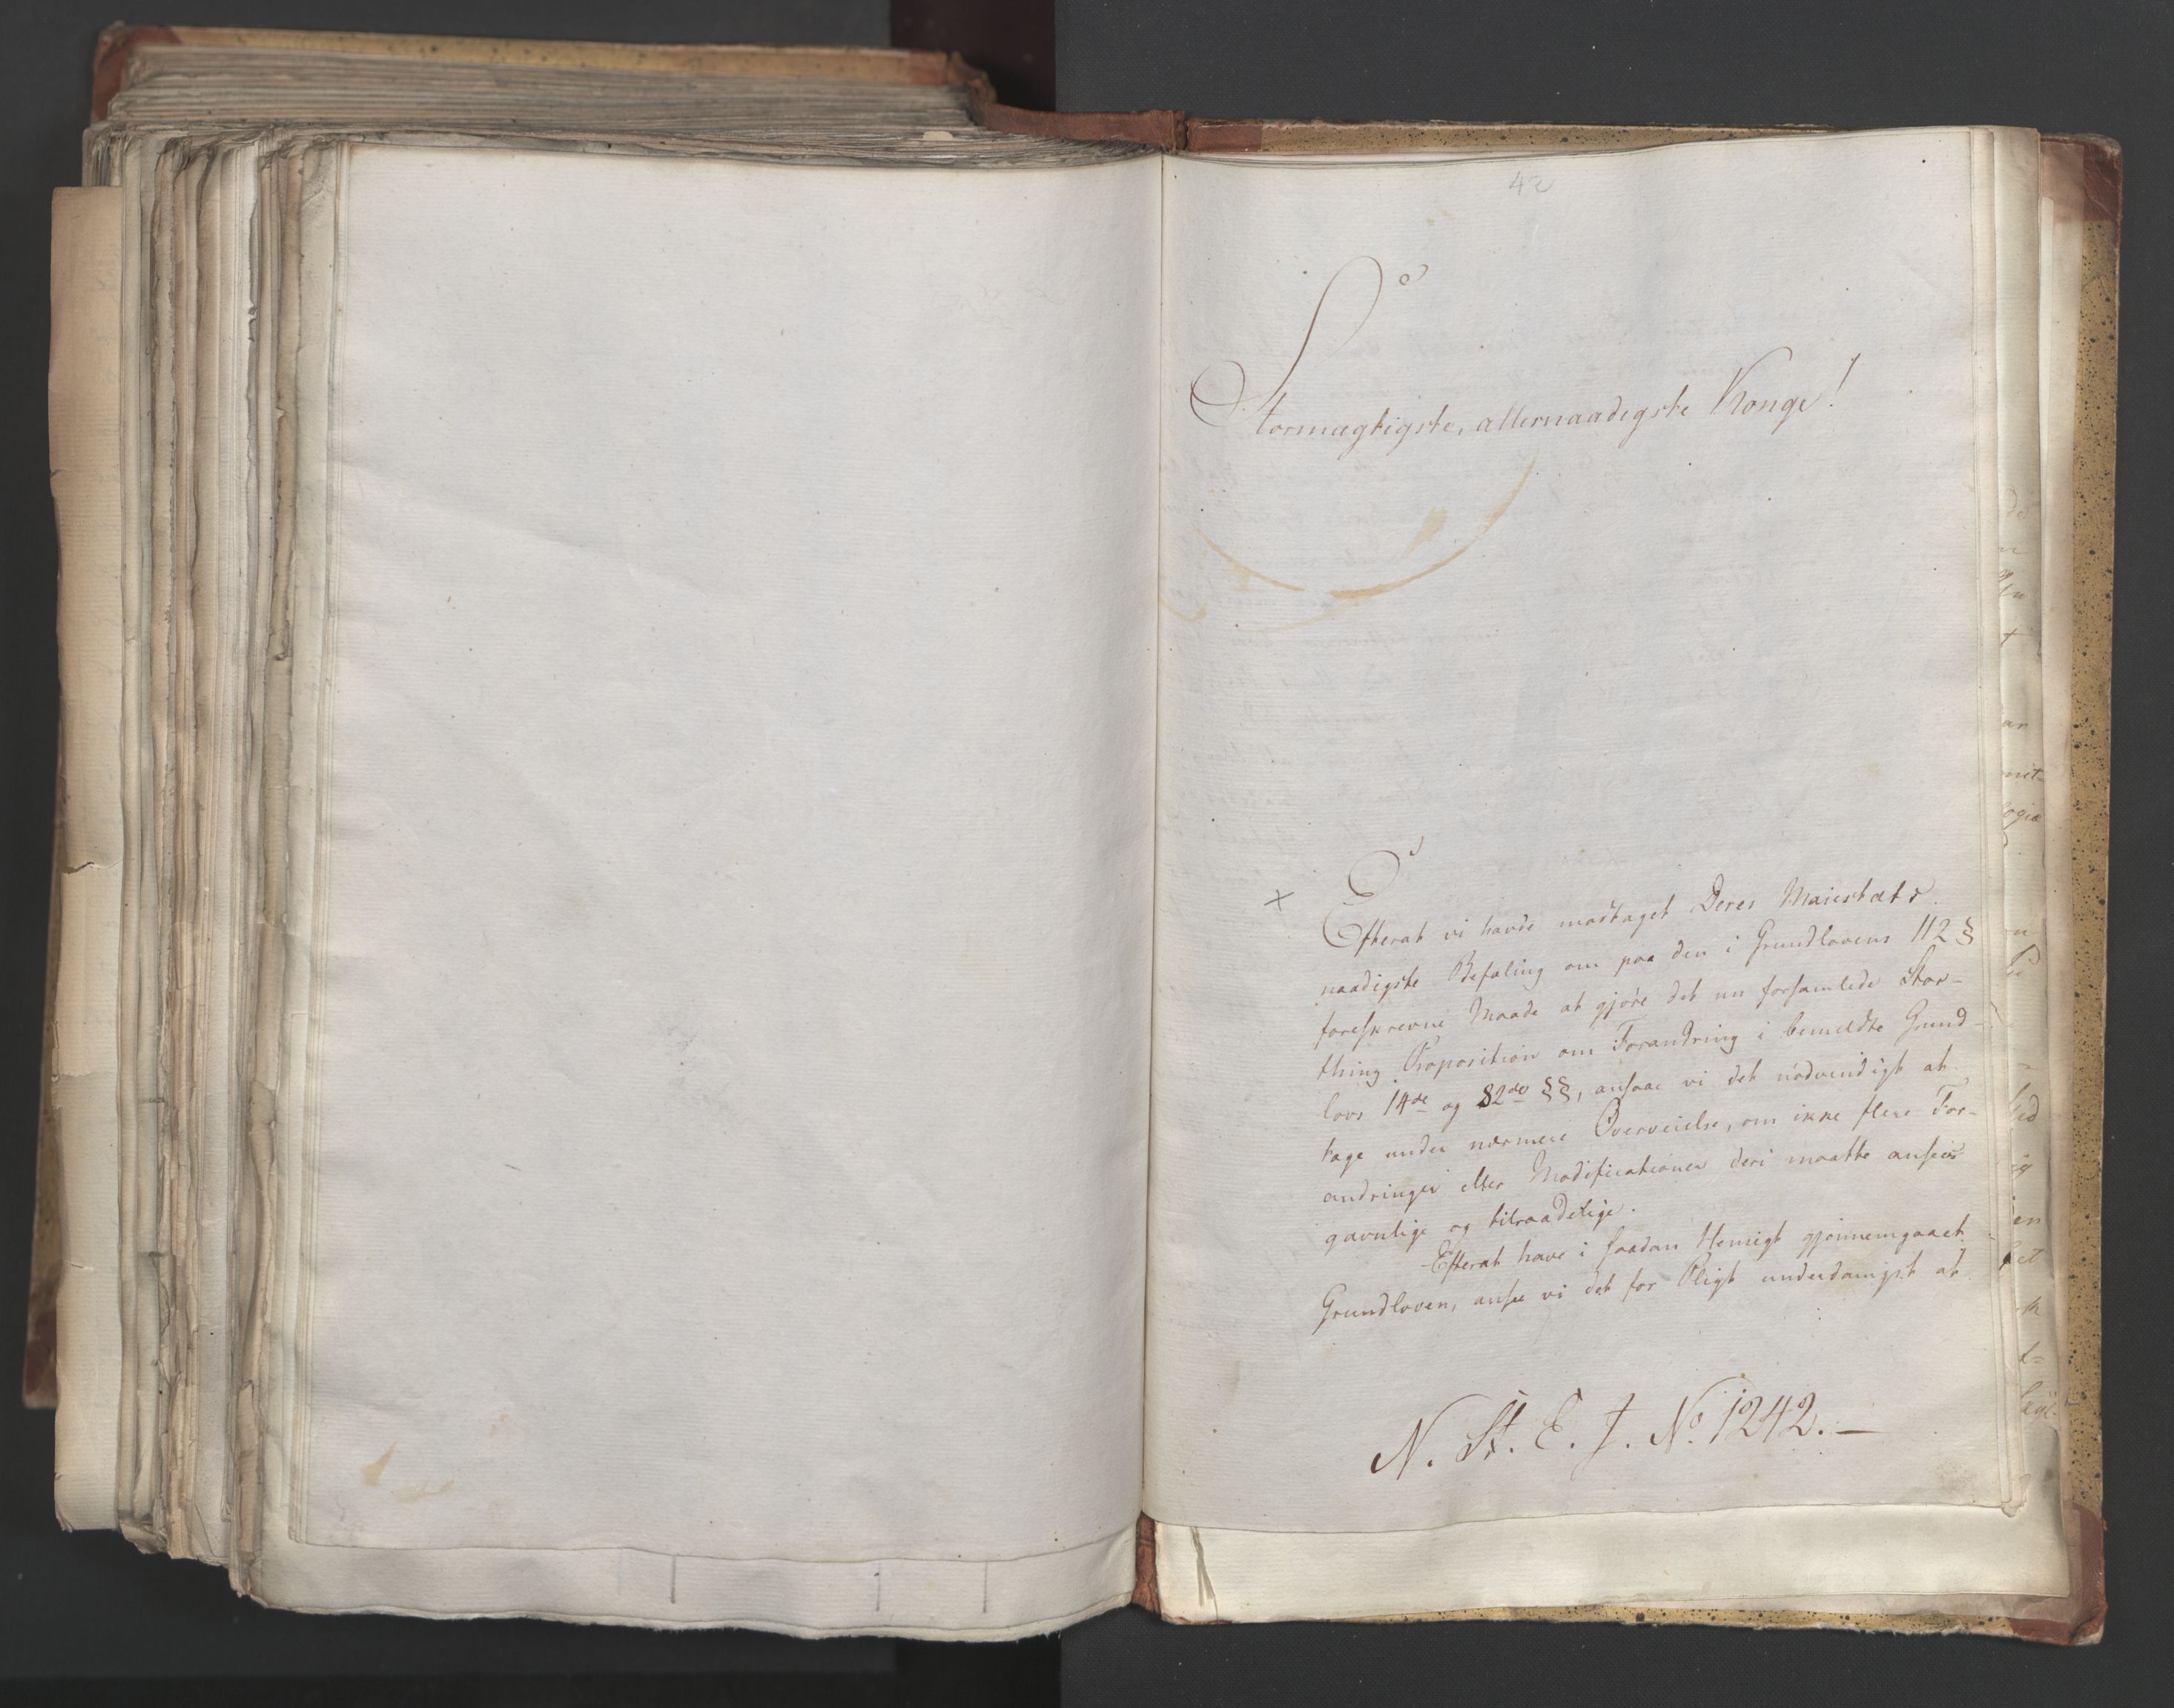 42
Stormægtigste, allernaadigste Konge!
Efterat vi havde modtaget Deres Maiestæts
naadigste Befaling om paa den i Grundlovens 112 §
foreskrevne Maade at gjøre det nu forsamlede Stor-
thing Proposition om Forandring i bemeldte Grund-
lovs 14de og 82de §§, ansaae vi det nødvendigt at
tage under nærmere Overveielse, om ikke flere For-
andringer eller Modificationer deri maatte ansees
gavnlige og tilraadelige.
Efterat have i saadan Hensigt gjennemgaaet
Grundloven, ansee vi det for Pligt underdanigst at
N. St. E. J. No. 1242. —